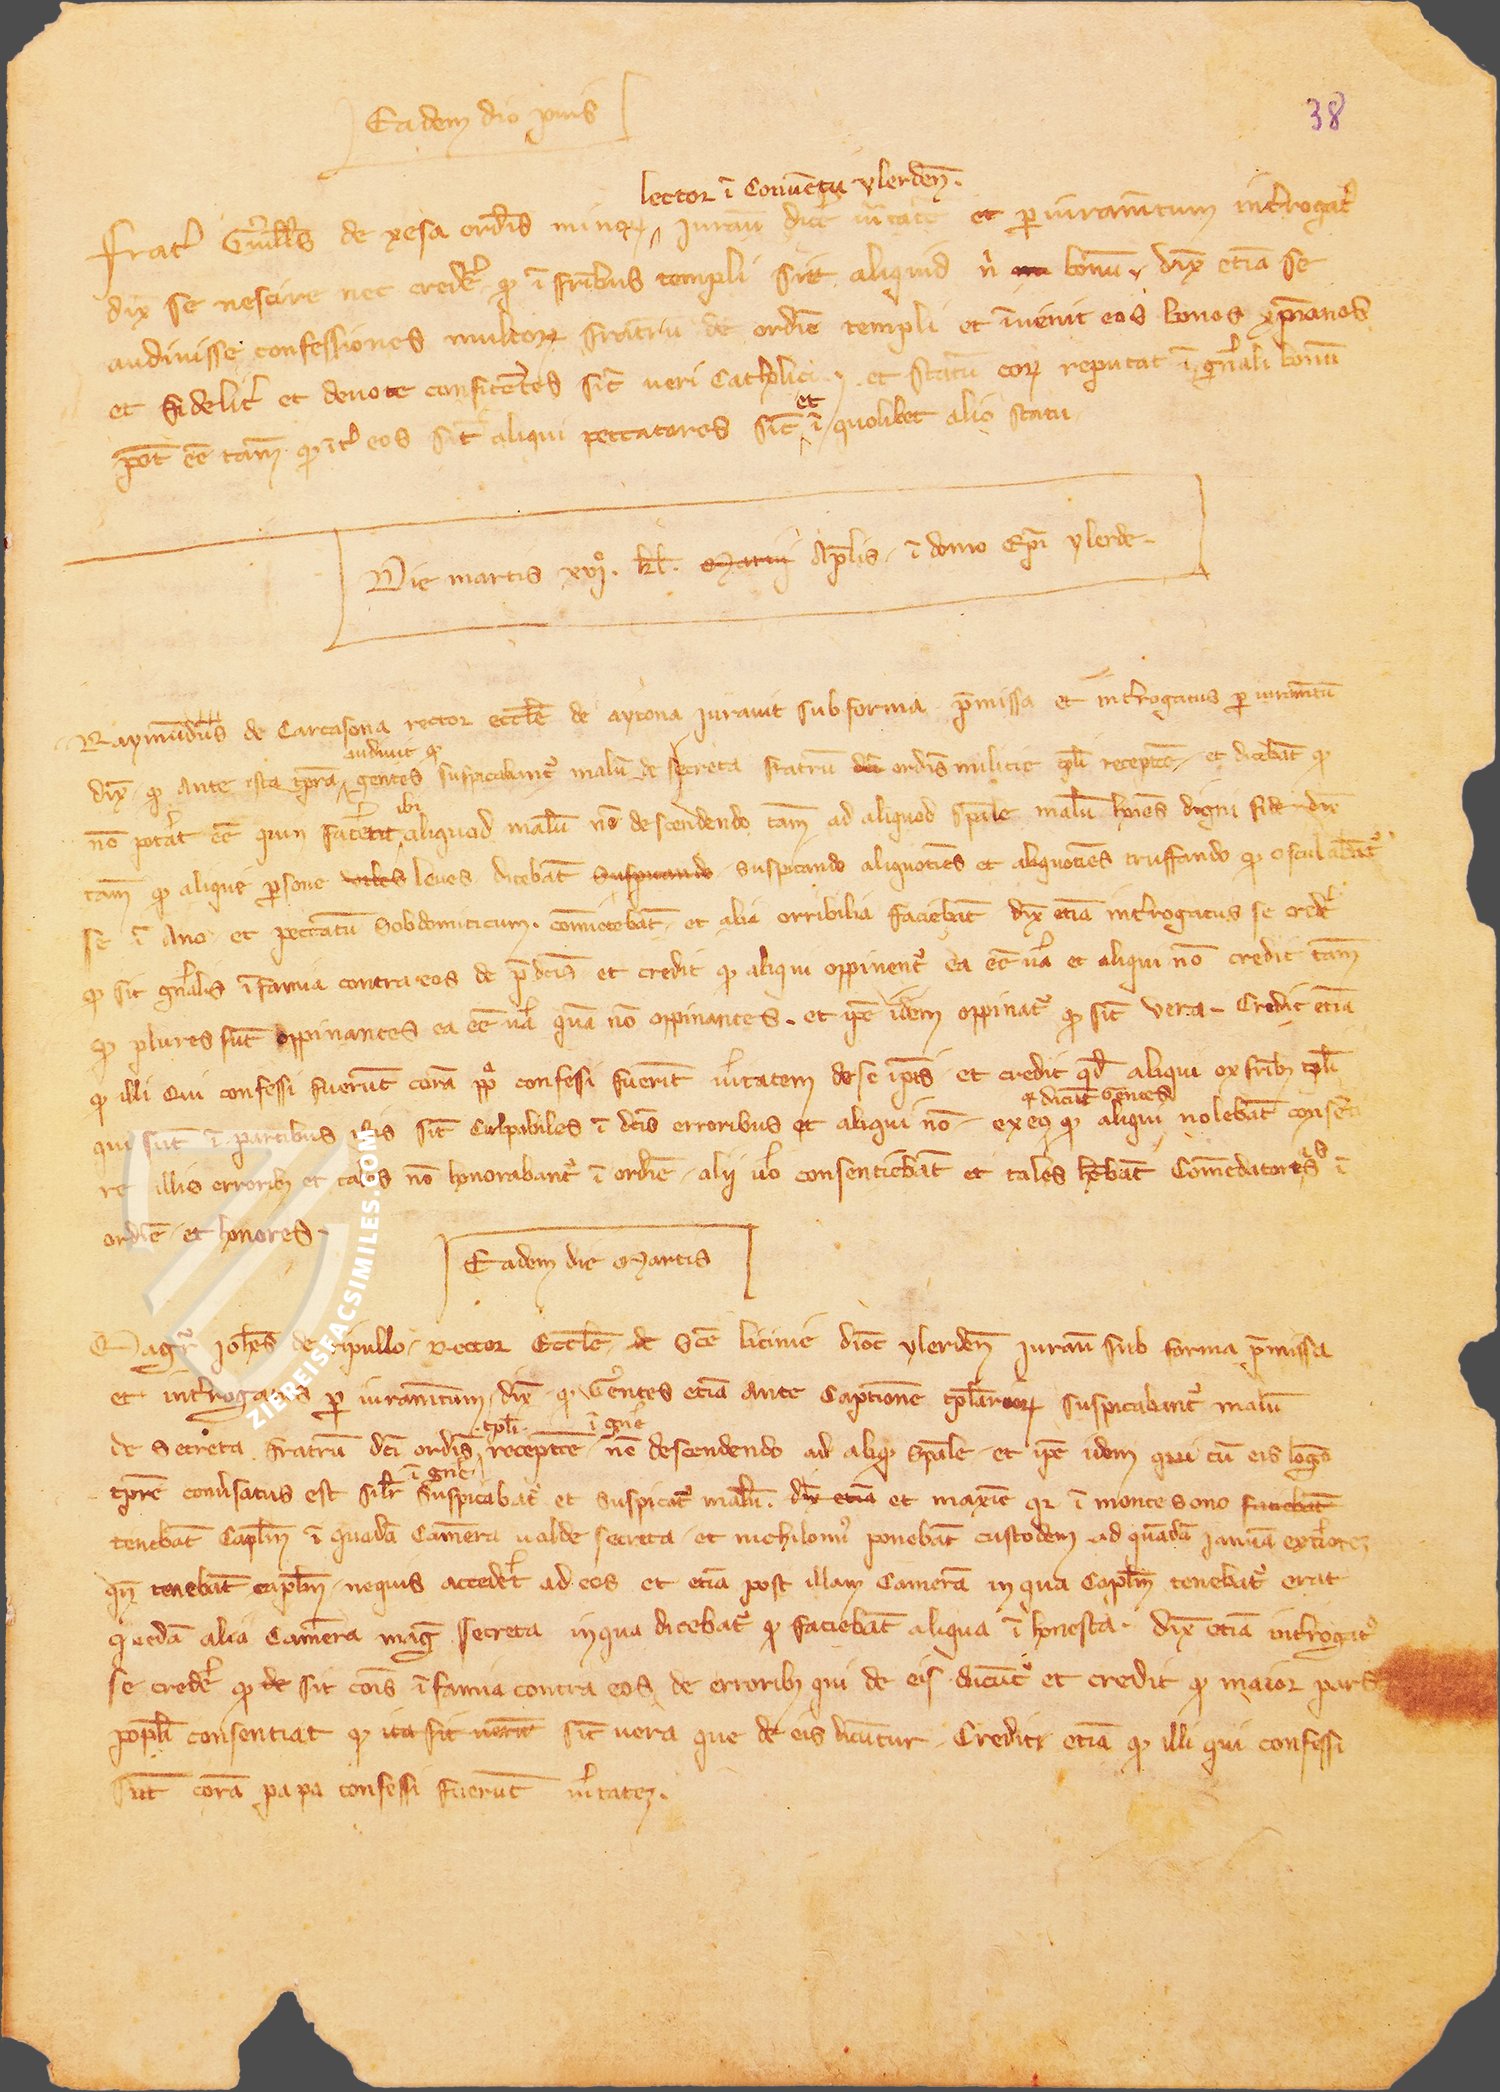 Eadem die p̄mis
38
lector ī Conuētu ylerdeñ.
Frať Guillṡ de xesa ordīs minoꝝ Jurauit dice ūitatē et ꝑ iuramtum int̄rogat᾽
dix̄ se nescire nec credeᷣ ꝙ ī fr̄ibus templi sit aliquid n̄ bonū. dix̄ etiā se
audiuisse confessiones multoꝝ fratrū de ordīe templi et īuenit eos bonos xp̄ianos
et fideliť et deuote confitētes sic̄ ueri Catholici. et statū eoꝝ reputat ī gn̄ali bonū
pōt eē tam̄ ꝙ īť eos sīt aliqui peccatores sic̄ et ī quolibet alio statu
Die martis xvijº. kl̄. Marcij Ap̄lis ī domo Ep̄i ylerdē
Raymūdus de Carcasona rector eccl̄ē de aytona Jurauit sub forma p̄missa et int̄rogatus ꝑ iuramtū
audiuit ꝙ
dix̄ ꝙ Ante ista tp̄ra gentes suspicabant᾽ malū de secreta fratrū ordīs milicie tp̄li recepc̄oē et dicebāt ꝙ
ibi
nō poťat eē quin facerēt aliquod malū nō descendendo tam̄ ad aliquod sp̄āle malū hoīes digni fide dix̄
tam̄ ꝙ alique ꝑsone uiles leues dicebāt suspicando suspicando aliquociēs et aliquociēs truffando ꝙ osculabāt᾽
se ī Ano et peccatū Sobdomiticum. com̄ictebāt et alia orribilia faciebāt dix̄ etiā int̄rogatus se credeᷣ
ꝙ sit gn̄alis īfamia contra eos de p̄dc̄is et credit ꝙ aliqui oppinent᾽ ea eē ūa et aliqui nō credit tam̄
ꝙ plures sūt oppinantes ea eē ūa quā nō oppinantes. et ip̄e idem oppinat᾽ ꝙ sīt vera Credit etiā
ꝙ illi qui confessi fuerūt corā pp̄ confessi fuerīt ūitatem de se ip̄is et credit qd̄ aliqui ex fr̄ib; tp̄li
ꝙ dicūt gentes
qui sūt ī partibus istis sīt Culpabiles ī dc̄is erroribus et aliqui nō ex eo ꝙ aliqui nolebāt consenti
re illis errorib; et tales nō honorabant᾽ ī ordīe alij ūo consentiebāt et tales hēbāt Comēdatorias ī
ordīe et honores
Eadem die Martis
Magr̄ Joh̄es de ripullo Rector Eccl̄ē de Scē licinie dioc̄ ylerdeñ Jurauit sub forma p̄missa
et int̄rogatus ꝑ iuramtum dix̄ ꝙ Gentes etiā Ante Captionē tp̄larioꝝ suspicabant᾽ malū
tp̄li ī gn̄e
de secreta fratrū dc̄i ordīs recepc̄oē nō descendendo ad aliꝙ sp̄āle et ip̄e idem qui cū eis longo
ī gn̄e
tp̄re conūsatus est silr̄ suspicabat᾽ et suspicat᾽ malū. dix̄ etiā et maxīe qꝛ ī montesono faciebāt
tenebāt Capl̄m ī quadā Camera ualde secreta et nichilomī ponebāt custodem ad quādā Januā exteriorē
qn̄ tenebāt capl̄m nequis accedeᷣt ad eos et etiā post illam Camerā in qua Capl̄m tenebat᾽ erat
quedā alia Camera mag̃ secreta in qua dicebat᾽ ꝙ faciebāt aliqua ī honesta. Dix̄ etiā int̄rogat᾽
se credeᷣ ꝙ de sit coīs īfamia contra eos de errorib; qui de eis dicūt᾽ et credit ꝙ maior pars
popl̄i consentiat ꝙ ita sit sīt uera que de eis dicūtur. Credit etiā ꝙ illi qui confessi
sūt corā papa confessi fuerūt ūitatez.
ZIEREISFACSIMILES.COM